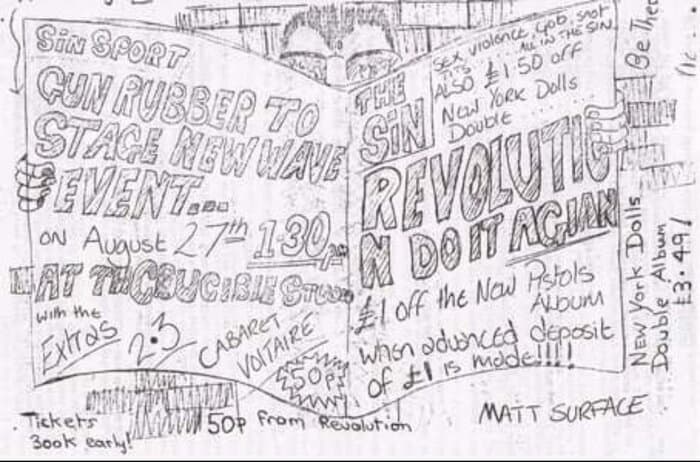 SiN SPORT
GUN RUBBER TO
STAGE NEW WAVE
EVENT...
ON August 27th 1.30pm
AT THCRUCIBLE STUDIO
with the
Extras
2.3
CABARET
VOLTAIRE
50p!
Tickets
50p from Revolution
Book early!
THE
SiN
SEX violence gob, snot
TITS ... ALL IN THE SIN
ALSO £1.50 off
New York Dolls
Double ........
REVOLUTIO
N DO IT AGIAN
£1 off the New Pistols
Album
when advanced deposit
of £1 is made!!!!
MATT SURFACE
Be Ther
New York Dolls
Double Album
£3.49!